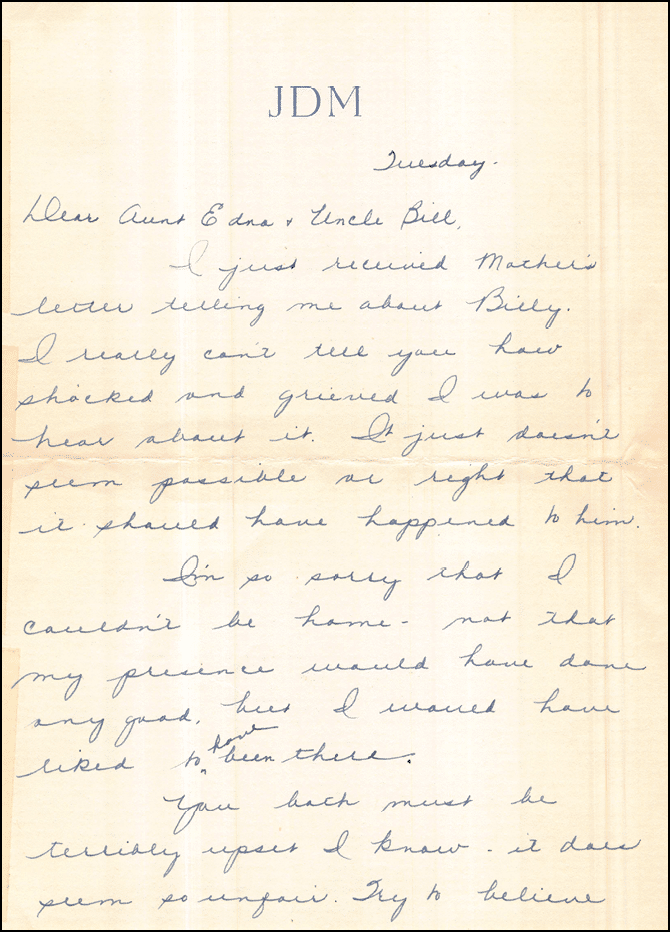 JDM
Tuesday.
Dear Aunt Edna + Uncle Bill,
I just received Mother's
letter telling me about Billy.
I really can't tell you how
shocked and grieved I was to
hear about it. It just doesn't
seem possible or right that
it should have happened to him.
I'm so sorry that I
couldn't be home - not that
my presence would have done
any good, but I would have
liked to have been there.
You both must be
terribly upset I know - it does
seem so unfair. Try to believe